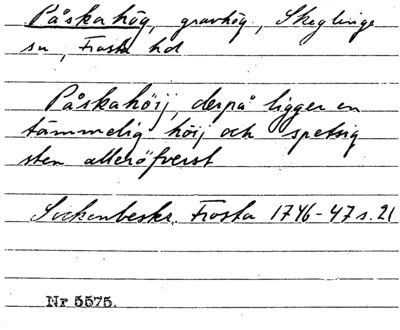 Påskahög, gravhög, Skeglinge
sn, Frosta hd
Påskahöij, derpå ligger en
tämmelig höij och spetsig
sten allröfverst
Sockenbeskr. Frosta 1746-47 s. 21
Nr 5575.